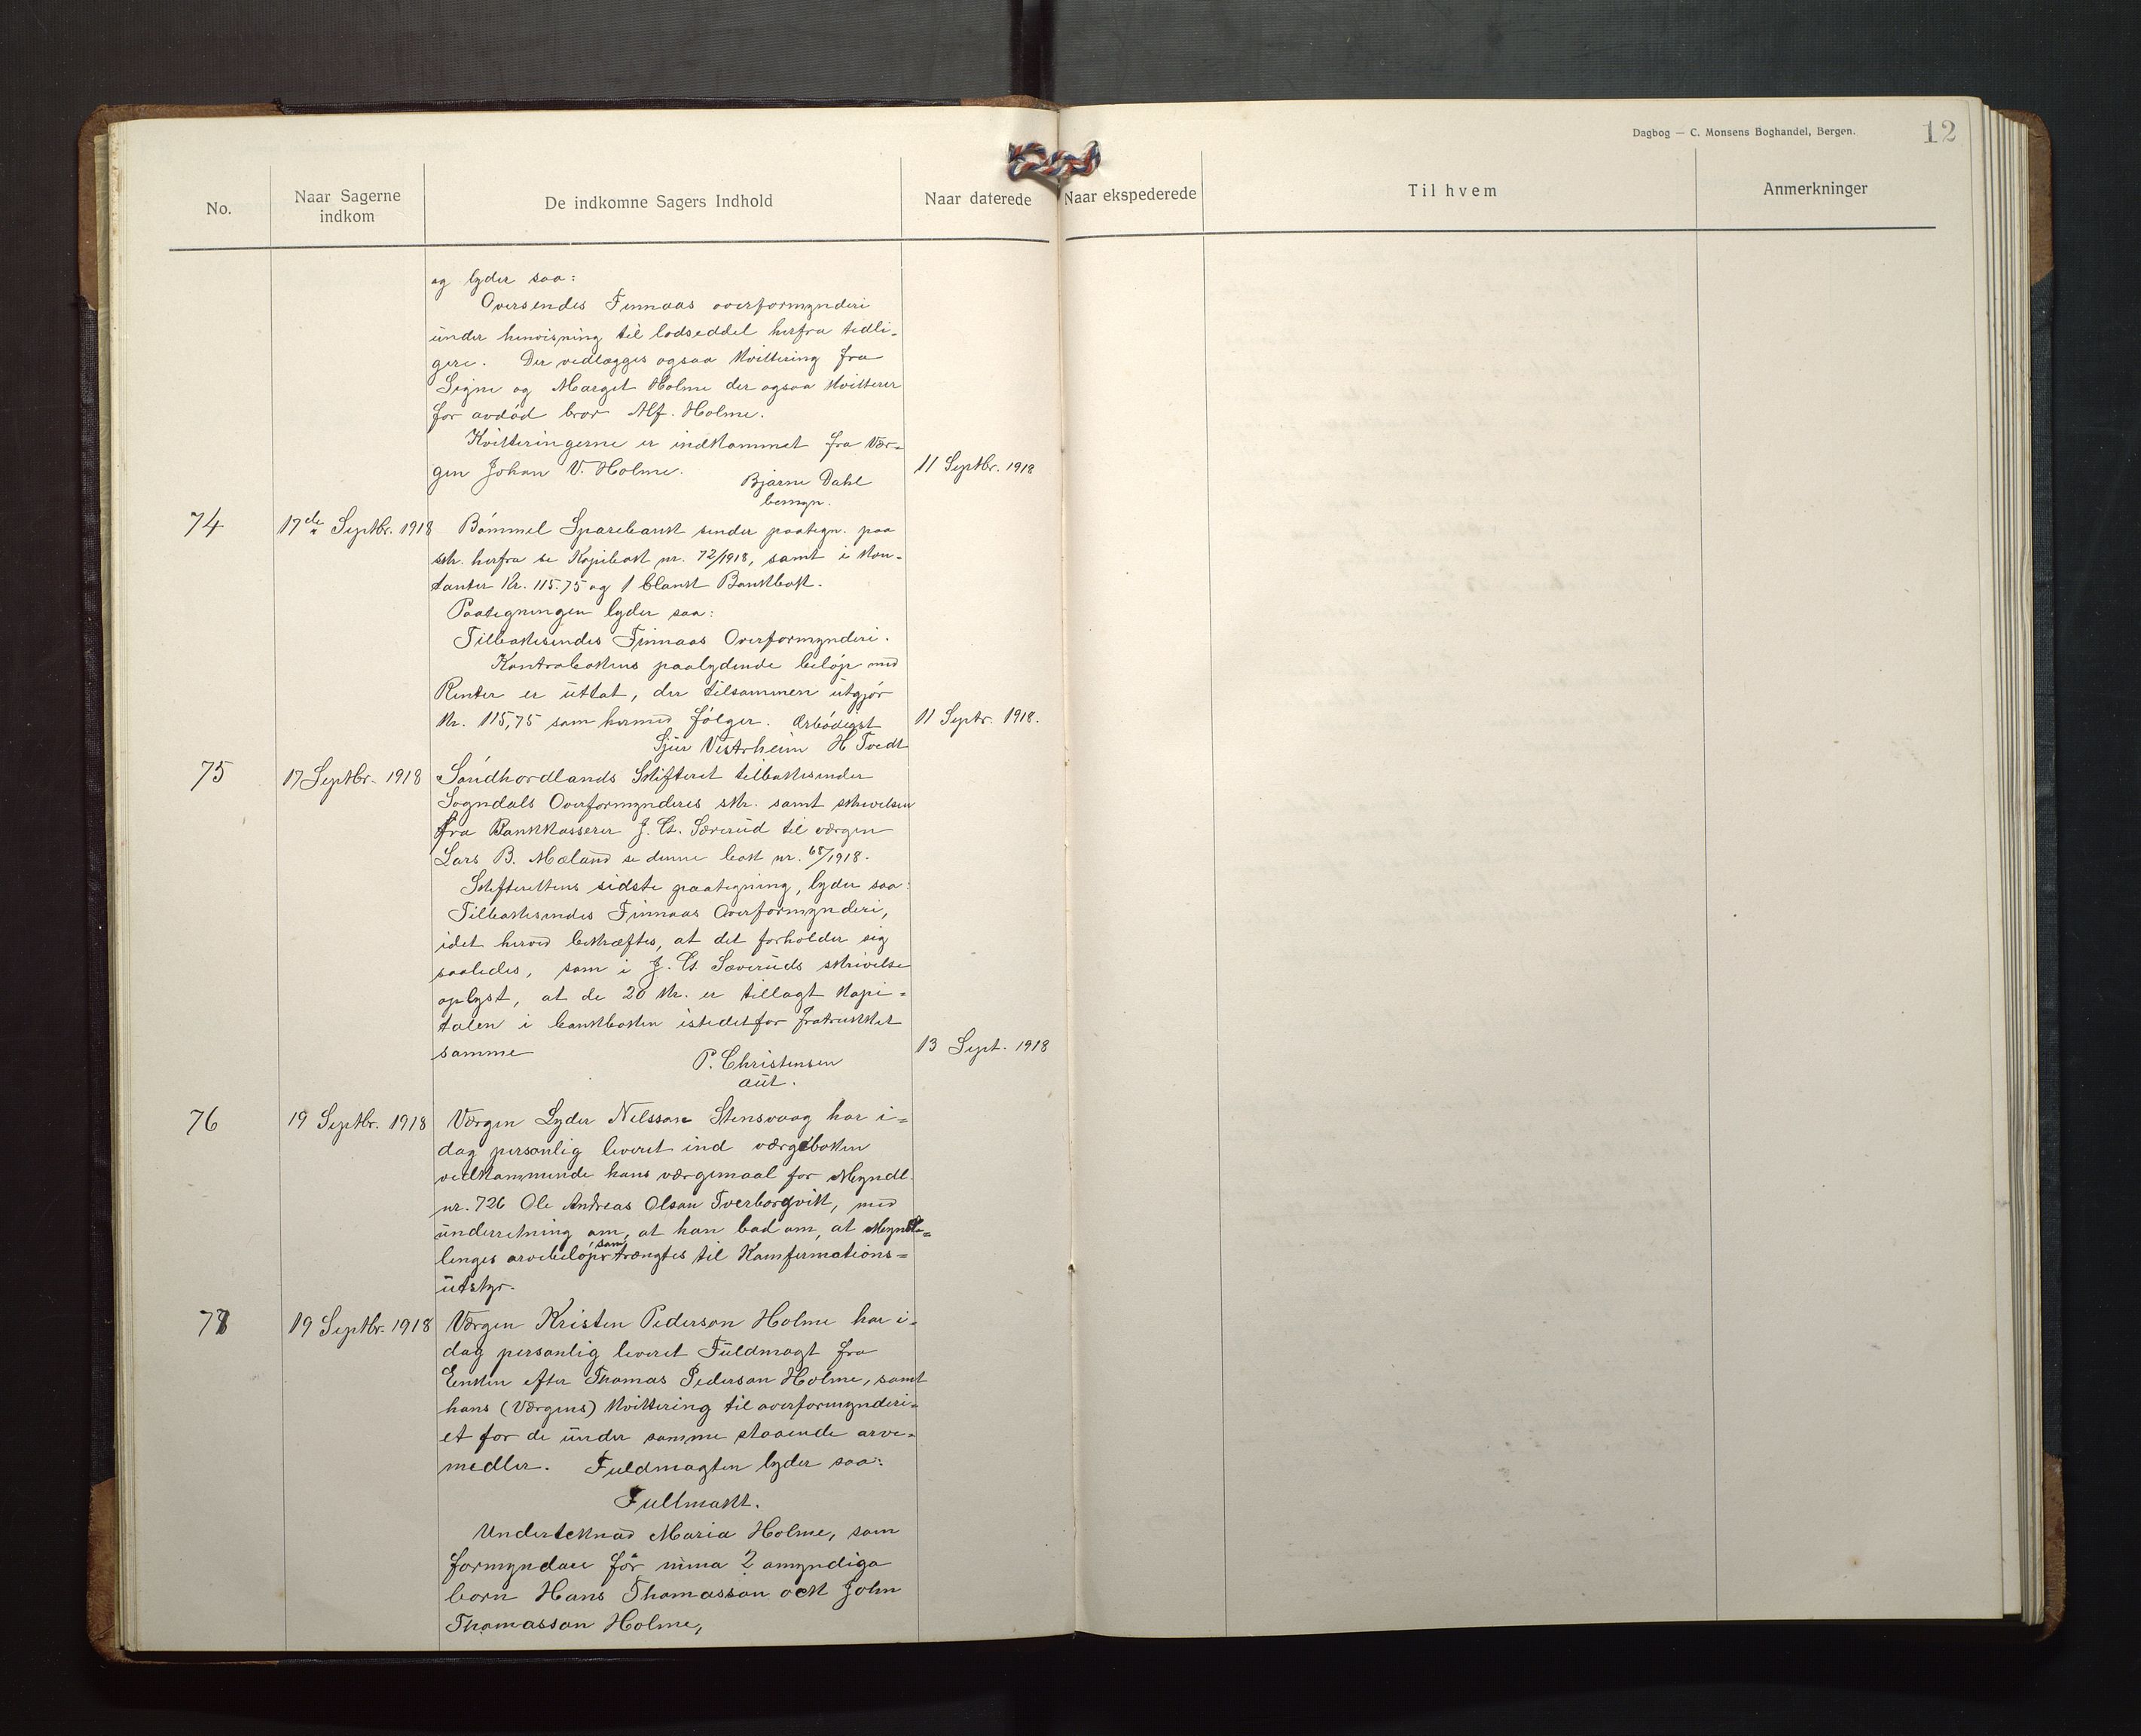 Dagbog — C. Monsens Boghandel, Bergen.
12
No.
Naar Sagerne indkom
De indkomne Sagers Indhold
Naar daterede
Naar ekspederede
Til hvem
Anmerkninger
og lyder saa:
Oversendes Finnaas overformynderi
under henvisning til lodseddel herfra tidli-
gere. Der vedlægges ogsaa kvittering fra
Signe og Marget Holme der ogsaa kvitterer
for avdød bror Alf. Holme.
Kvitteringerne er indkommet fra Vær-
gen Johan V. Holme.
11 Septbr. 1918
Bjarne Dahl
bemyn.
74
17de Septbr. 1918
Bømmel Sparebank sender paategn. paa
skr. herfra se Kopibok nr. 72/1918, samt i kon-
tanter Kr. 115.75 og 1 blank Bankbok.
Paategningen lyder saa:
Tilbakesendes Finnaas Overformynderi.
Kontrabokens paalydende beløp med
Renter er uttat, der tilsammen utgjør
Kr. 115,75 som hermed følger. Ærbødigst
11 Septr. 1918.
Sjur Vestrheim H Tvedt
75
17 Septbr. 1918
Søndhordlands Skifteret tilbakesender
Sogndals Overformynderis skr. samt skrivelsen
fra Bankkasserer J. Cs. Sæverud til værgen
Lars B. Mæland se denne bok nr. 68/1918.
Skifterettens sidste paategning, lyder saa:
Tilbakesendes Finnaas Overformynderi,
idet herved bekræftes, at det forholder sig
saaledes, som i J. Cs. Sæveruds skrivelse
oplyst, at de 20 Kr. er tillagt kapi-
talen i bankboken istedetfor fratrukket
samme
13 Sept. 1918
P. Christensen
aut.
76
19 Septbr. 1918
Værgen Lyder Nelsson Stensvaag har i-
dag personlig leveret ind værgeboken
vedkommende hans værgemaal for Myndl.
nr. 726 Ole Andreas Olson Tverborgvik, med
underretning om, at han bad om, at Myndl-
linges arvebeløp, som trængtes til Konfirmations-
utstyr.
77
19 Septbr. 1918
Værgen Kristen Pederson Holme har i-
dag personlig leveret Fuldmagt fra
Enken efter Thomas Pederson Holme, samt
hans (Værgens) kvittering til overformynderi-
et for de under samme staaende arve-
medler. Fuldmagten lyder saa:
Fullmakt.
Undertecknad Maria Holme, som
formyndare för mina 2 omyndiga
born Hans Thomasson ock John
Thomasson Holme,